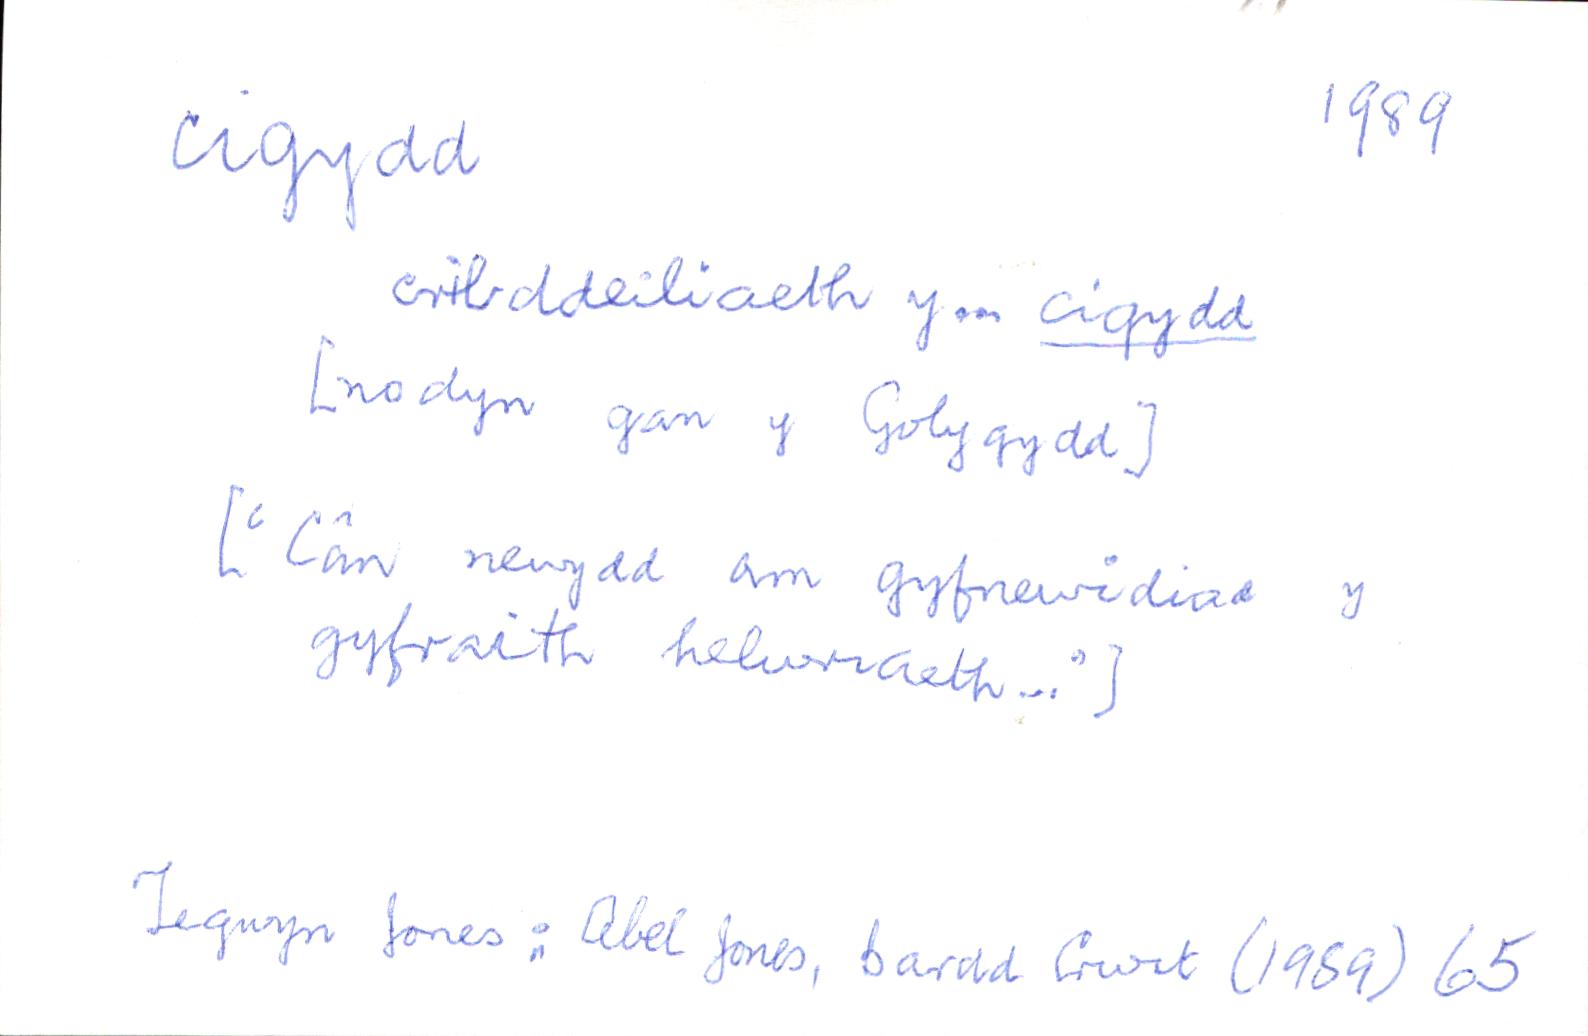 cigydd 1989
cribddeiliaeth y... cigydd
[nodyn gan y Golygydd]
['Cân newydd am gyfnewidiad y
gyfraith helwriaeth...']
Tegwyn Jones; Abel Jones, bardd Crwst (1989) 65